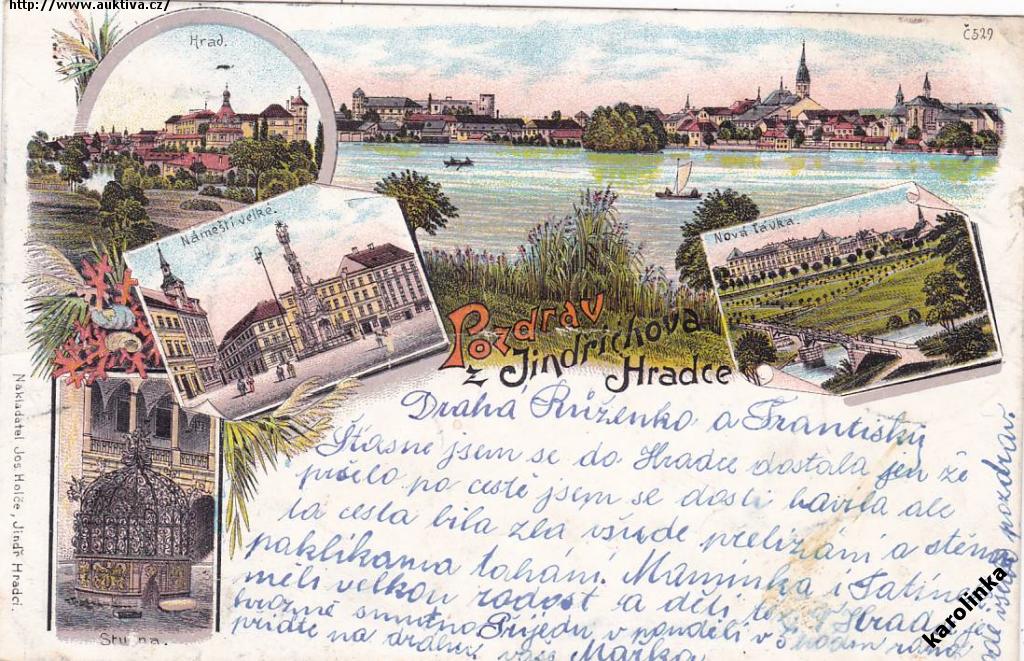 http://www.auktiva.cz/
Hrad.
Č529
Náměstí velké.
Nová lávka.
Pozdrav
z Jindřichova
Hradce
Nakladatel Jos. Holče, Jindř. Hradci.
Studna.
Drahá Růženko a Františky
Šťasne jsem se do Hradce dostala jen že
pršelo po cestě jsem se dosti bavila ale
ta cesta bila zlá všude přelizáni a stěm
paklikama taháni. Maminka i Tatín
měli velkou radost a děti též V Hradci je
hrozně smutno Přijedu v pondělí v 5 hodin
přidte na dráhu vaše Mařka
všecko pozdravuj
karolinka